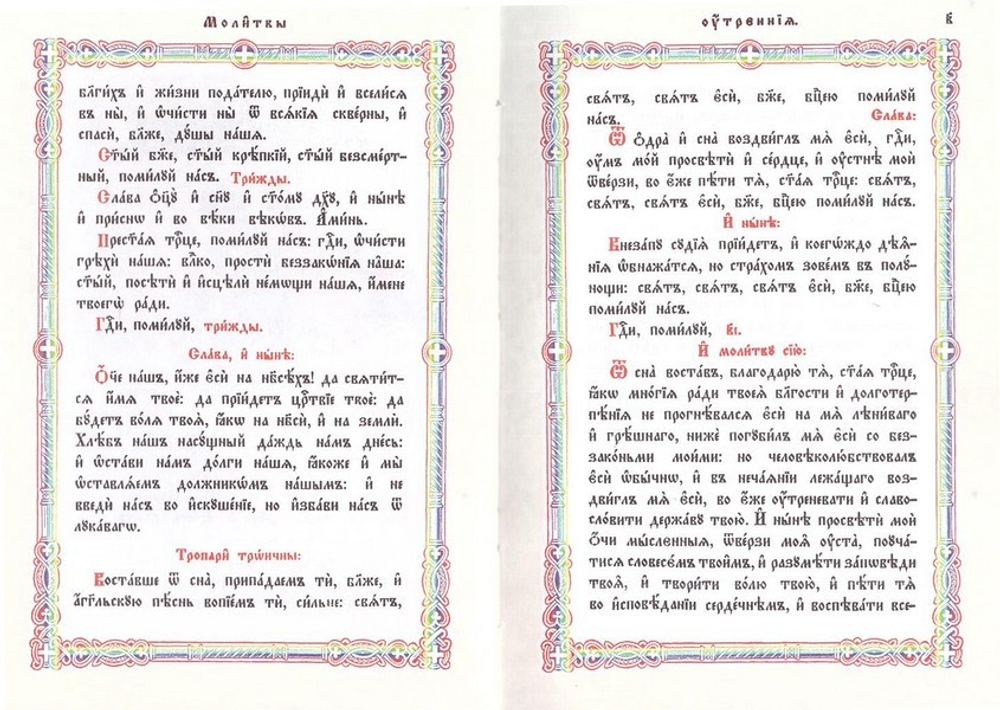 Моли̑твы
бл҃ги́хъ и҆ жи́зни пода́телю, прїидѝ и҆ всели́сѧ
въ ны̀, и҆ ѡ҆чи́сти ны̀ ѿ всѧ́кїѧ скве́рны, и҆
спасѝ, бл҃же, дꙋ́шы на́шѧ.
Ст҃ы́й бж҃е, ст҃ы́й крѣ́пкїй, ст҃ы́й безсме́рт-
ный, поми́лꙋй на́съ. Три́жды.
Сла́ва ѻ҆ц҃ꙋ̀ и҆ сн҃ꙋ и҆ ст҃о́мꙋ дх҃ꙋ, и҆ ны́нѣ
и҆ при́снѡ и҆ во вѣ́ки вѣкѡ́въ. А҆ми́нь.
Прест҃а́ѧ трⷪ҇це, поми́лꙋй на́съ: гдⷭ҇и, ѡ҆чи́сти
грѣхѝ на́шѧ: влⷣко, простѝ беззакѡ́нїѧ на̑ша:
ст҃ы́й, посѣтѝ и҆ и҆сцѣлѝ не́мѡщи на́шѧ, и҆́мене
твоегѡ̀ ра́ди.
Гдⷭ҇и, поми́лꙋй, три́жды.
Сла́ва, и҆ ны́нѣ:
Ѻ҆́че на́шъ, и҆́же є҆сѝ на нб҃сѣ́хъ! да свѧти́т-
сѧ и҆́мѧ твоѐ: да прїи́детъ црⷭ҇твїе твоѐ: да
бꙋ́детъ во́лѧ твоѧ̀, ꙗ҆́кѡ на нб҃сѝ, и҆ на землѝ.
Хлѣ́бъ на́шъ насꙋ́щный да́ждь на́мъ дне́сь:
и҆ ѡ҆ста́ви на́мъ до́лги на́шѧ, ꙗ҆́коже и҆ мы̀
ѡ҆ставлѧ́емъ должникѡ́мъ на́шымъ: и҆ не
введѝ на́съ во и҆скꙋше́нїе, но и҆зба́ви на́съ ѿ
лꙋка́вагѡ.
Тропарѝ трⷪ҇ичны:
Воста́вше ѿ сна̀, припа́даемъ тѝ, бл҃же, и҆
а҆́гг҃льскꙋю пѣ́снь вопїе́мъ тѝ, си́льне: свѧ́тъ,
оу҆́треннїѧ.
в҃
свѧ́тъ, свѧ́тъ є҆сѝ, бж҃е, бцⷣею поми́лꙋй
на́съ. Сла́ва:
Ѿ ѻ҆дра̀ и҆ сна̀ воздви́глъ мѧ̀ є҆сѝ, гдⷭ҇и,
оу҆́мъ мо́й просвѣтѝ и҆ се́рдце, и҆ оу҆стнѣ̀ моѝ
ѿве́рзи, во є҆́же пѣ́ти тѧ̀, ст҃а́ѧ трⷪ҇це: свѧ́тъ,
свѧ́тъ, свѧ́тъ є҆сѝ, бж҃е, бцⷣею поми́лꙋй на́съ.
И҆ ны́нѣ:
Внеза́пꙋ сꙋдїѧ̀ прїи́детъ, и҆ коегѡ́ждо дѣѧ̑-
нїѧ ѡ҆бнажа́тсѧ, но стра́хомъ зове́мъ въ полꙋ́-
нощи: свѧ́тъ, свѧ́тъ, свѧ́тъ є҆сѝ, бж҃е, бцⷣею
поми́лꙋй на́съ.
Гдⷭ҇и, поми́лꙋй, в҃і.
И҆ моли́твꙋ сїю̀:
Ѿ сна̀ воста́въ, благодарю̀ тѧ̀, ст҃а́ѧ трⷪ҇це,
ꙗ҆́кѡ мно́гїѧ ра́ди твоеѧ̀ бл҃гости и҆ долготер-
пѣ́нїѧ не прогнѣ́валсѧ є҆сѝ на мѧ̀ лѣни́ваго
и҆ грѣ́шнаго, нижѐ погꙋби́лъ мѧ̀ є҆сѝ со без-
зако́ньми мои́ми: но человѣколю́бствовалъ
є҆сѝ ѡ҆бы́чнѡ, и҆ въ неча́ѧнїи лежа́щаго воз-
дви́глъ мѧ̀ є҆сѝ, во є҆́же оу҆́треневати и҆ славо-
сло́вити держа́вꙋ твою̀. И҆ ны́нѣ просвѣтѝ моѝ
ѻ҆́чи мы́сленныѧ, ѿве́рзи моѧ̑ оу҆ста̀, поꙋча́-
тисѧ словесе́мъ твои̑мъ, и҆ разꙋмѣ́ти за́пѡвѣди
твоѧ̑, и҆ твори́ти во́лю твою̀, и҆ пѣ́ти тѧ̀
во и҆сповѣ́данїи серде́чнѣмъ, и҆ воспѣва́ти все-